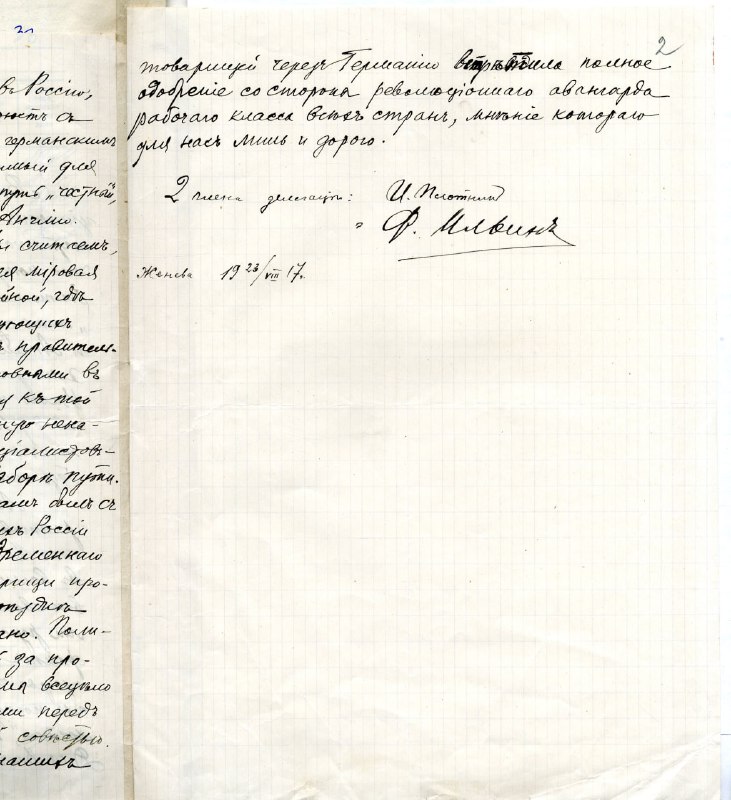 2л
въ Россію,
ютъ съ
германскимъ
мый для
путь „частной"
Англію.
считаемъ,
ая міровая
йной, гдѣ
ующихъ
ъ правитель-
овными въ
я къ той
ную нена-
ціалистовъ
выборѣ пути.
амъ былъ съ
ихъ Россіи
Временнаго
рищи про-
ано. Поли-
за про-
ла всецѣло
ми передъ
совѣстью.
нашихъ
2
товарищей черезъ Германію встрѣтила полное
одобреніе со стороны революціоннаго авангарда
рабочаго класса всѣхъ странъ, мнѣніе котораго
для насъ лишь и дорого.
2 члена делегаціи: И. Плотникъ
" Ф. Ильинъ
Женева 19 23/VIII 17г.